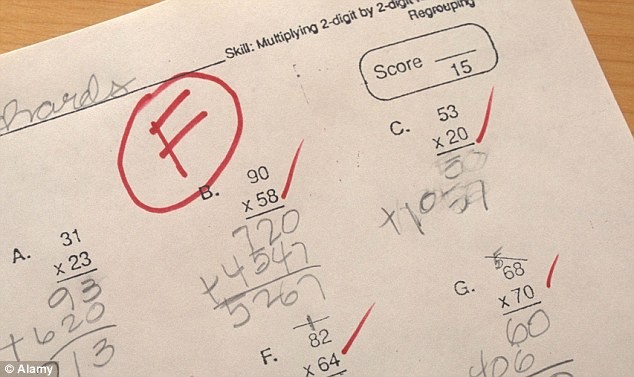 Skill: Multiplying 2-digit by 2-digit
Regrouping
Score
15
F
A.
31
x 23
93
+620
13
B.
90
x 58
720
+4547
5267
C.
53
x 20
F.
1
82
x 64
G.
5
68
x 70
60
© Alamy